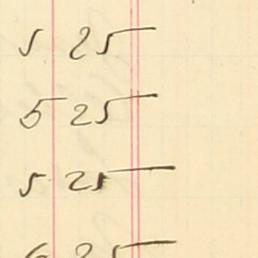 5 25
5 25
5 25
6 25